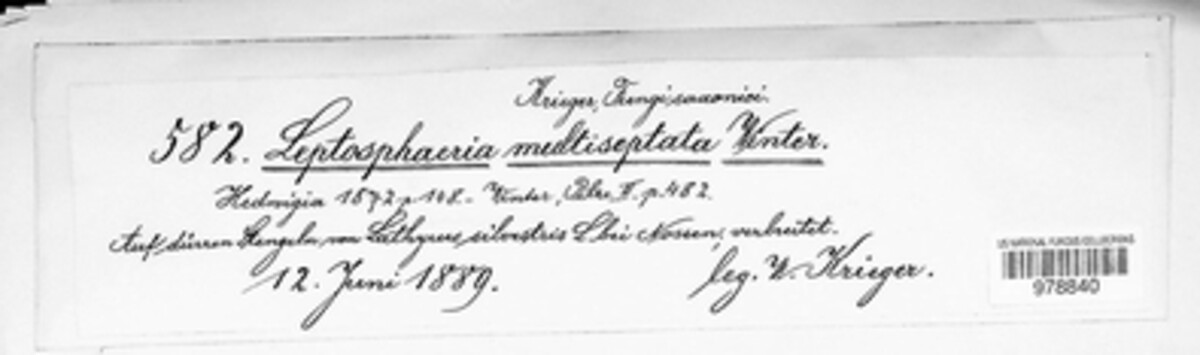 Krieger, Fungi saxonici.
582. Leptosphaeria multiseptata Winter.
Hedwigia 1872 p. 148. – Winter, Pilze II. p. 482.
Auf dürren Stengeln von Lathyrus silvestris L. bei Nossen, verbreitet.
12. Juni 1889.
leg. W. Krieger.
US NATIONAL FUNGUS COLLECTIONS
978840